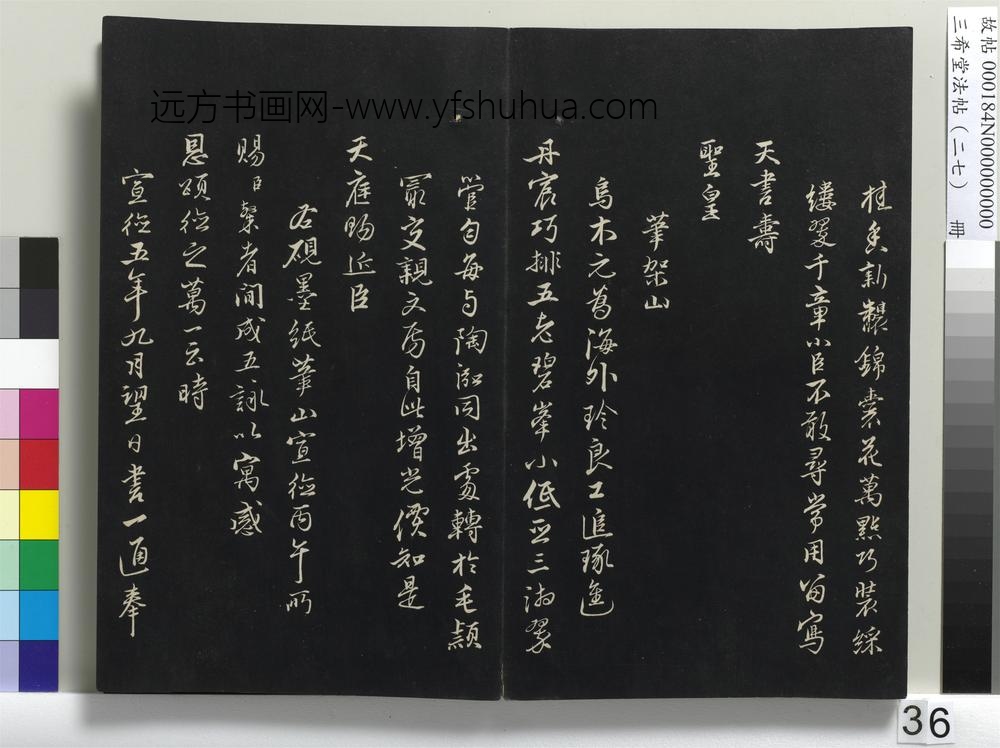 桂香新製錦囊花萬點巧裝綵
縷翠千章小臣不敢尋常用留寫
天書壽
聖皇
筆架山
烏木元為海外珍良工追琢進
丹宸巧排五老碧峯小低亞三湘翠
管勻每与陶泓同出處轉於毛穎
最交親文房自此增光價知是
天庭賜近臣
右硯墨紙筆山宣德丙午所
賜臣榮者間成五詠以寓感
恩頌德之萬一云時
宣德五年九月望日書一通奉
远方书画网-www.yfshuhua.com
故帖 000184N000000000
三希堂法帖(二七) 冊
36